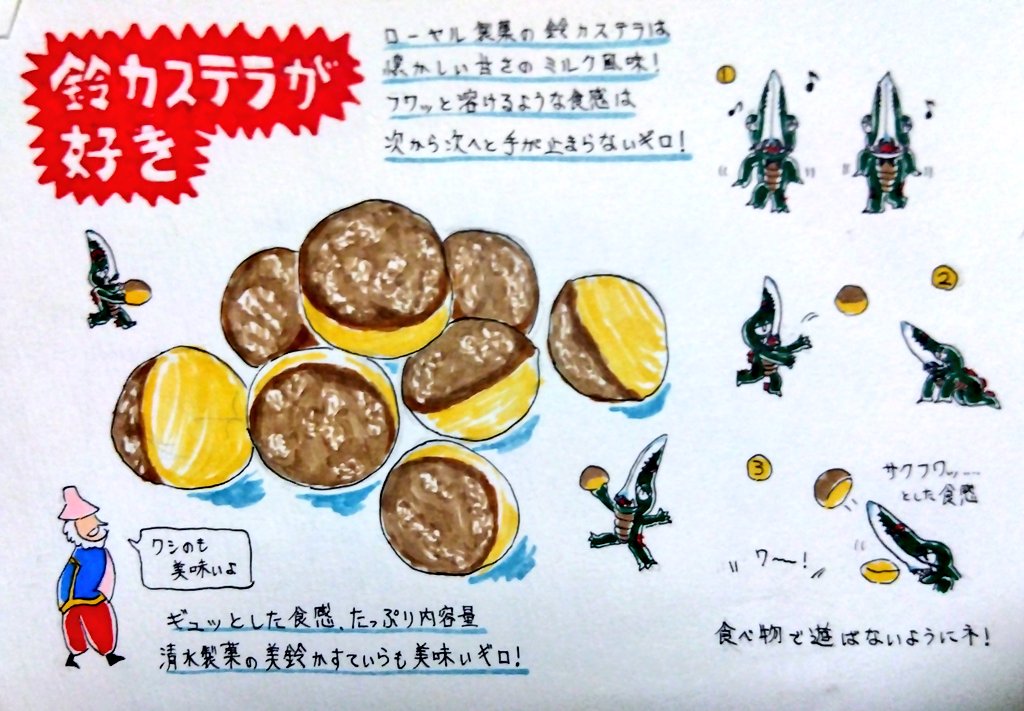 鈴カステラが
好き
ローヤル製菓の鈴カステラは
懐かしい甘さのミルク風味!
フワッと溶けるような食感は
次から次へと手が止まらないギロ!
①
②
③
サクフワッ……
とした食感
ワ〜!
ワシのも
美味いよ
ギュッとした食感、たっぷり内容量
清水製菓の美鈴かすていらも美味いギロ!
食べ物で遊ばないようにネ!